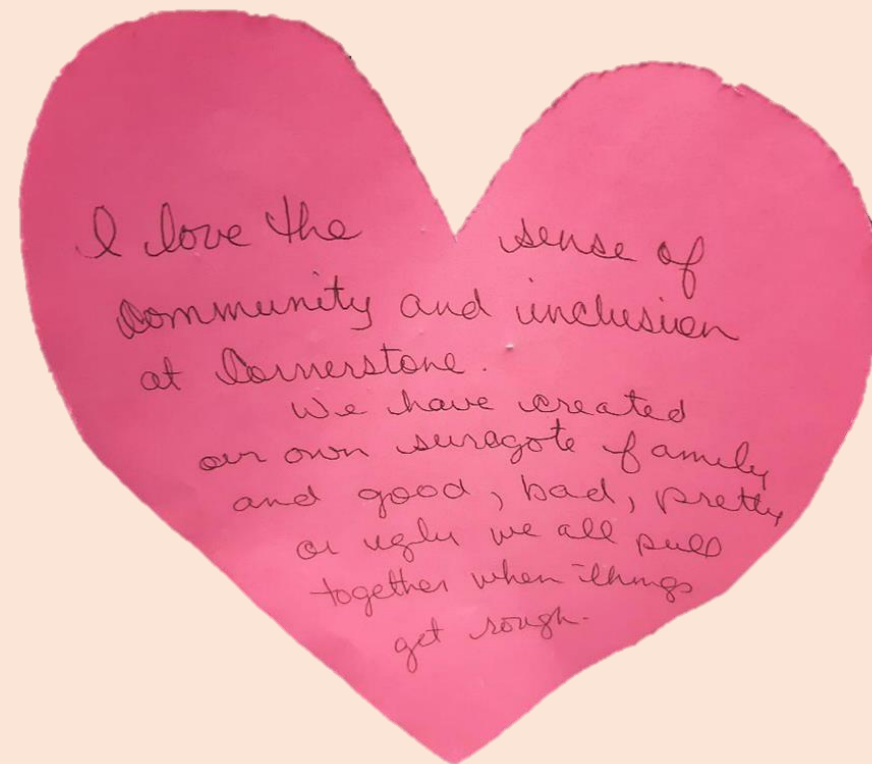 I love the sense of
Community and inclusion
at Cornerstone.
We have created
our own suragote family
and good, bad, pretty
or ugly we all pull
together when things
get rough.